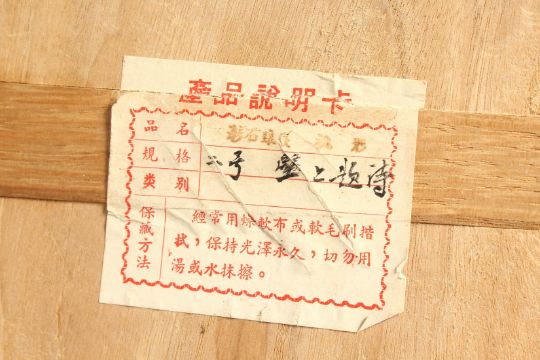 產品說明卡
品名 彩石鑲嵌
規格 二号 壁上題詩
类別
保藏方法
經常用燥軟布或軟毛刷揩
拭，保持光澤永久，切勿用
湯或水抹擦。